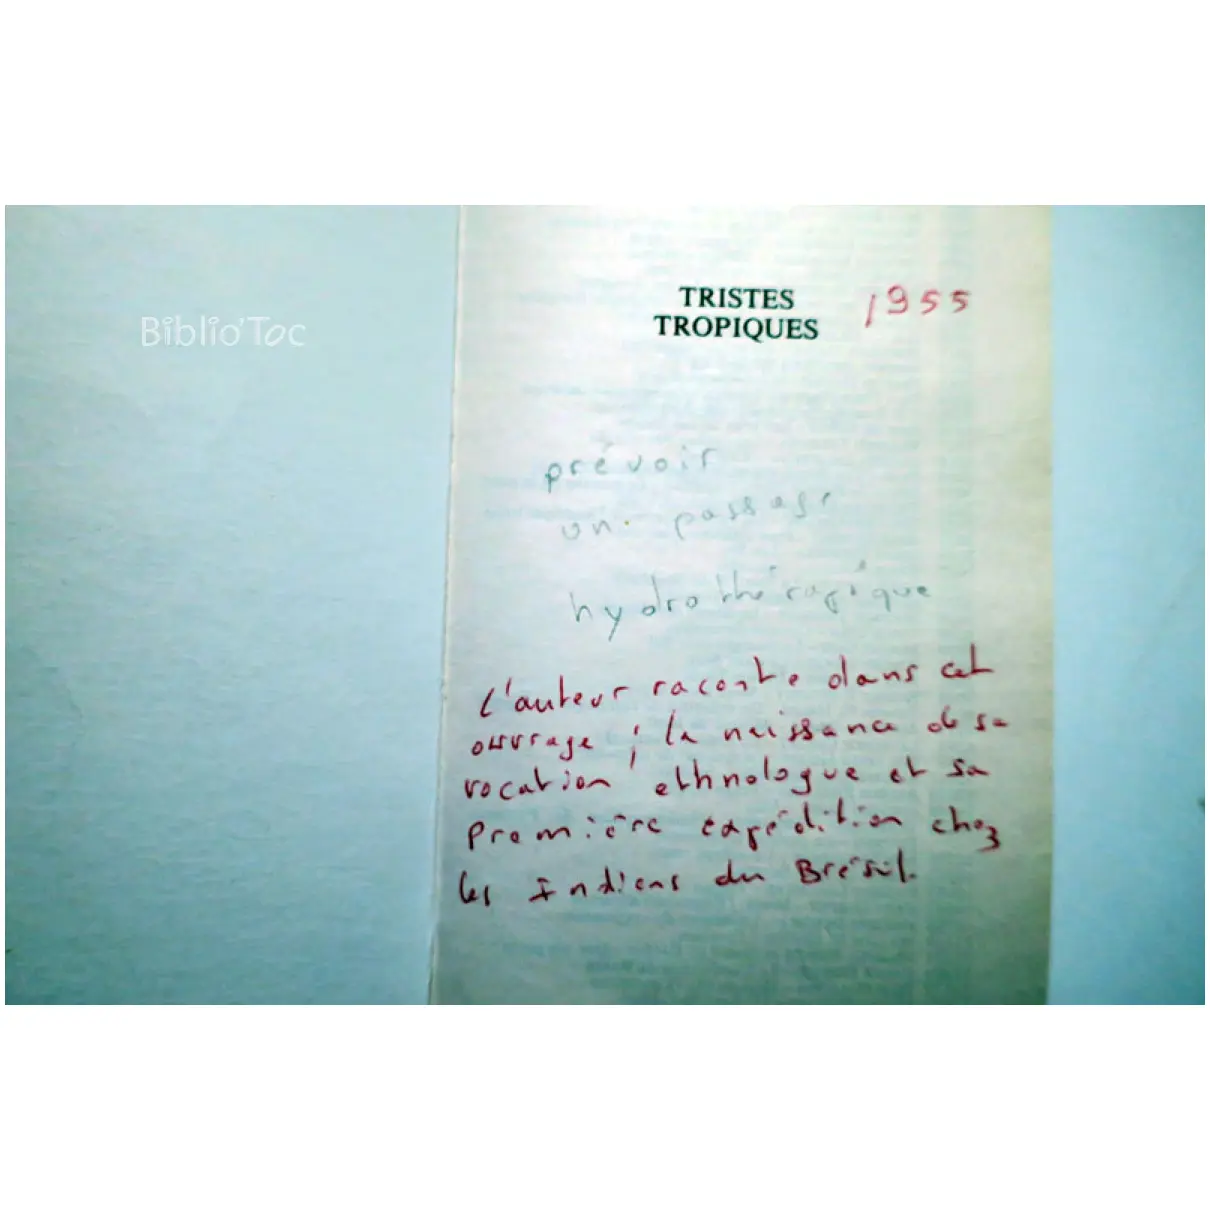 Biblio'Toc
TRISTES 1955
TROPIQUES
prévoir
un passage
hydrothérapique
L'auteur raconte dans cet
ouvrage ; la naissance de sa
vocation ethnologue et sa
première expédition chez
les Indiens du Brésil.